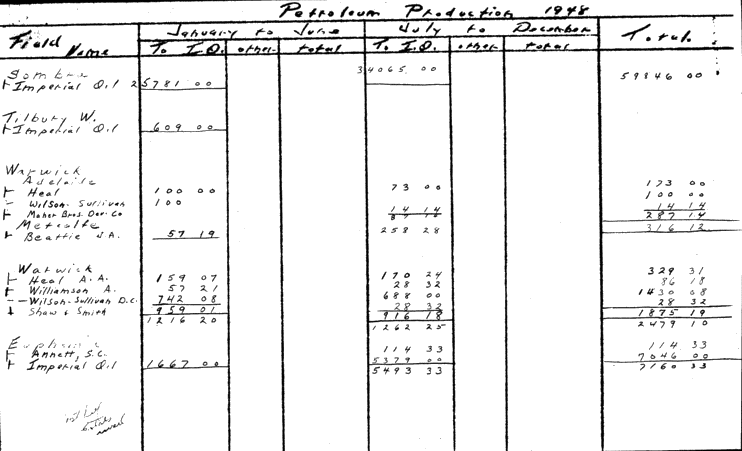 Petroleum Production 1948
January to June July to December
Field Name To I.O. other total To I.O. other total Total
Sombra 34065 00 59846 00
Imperial Oil 25781 00
Tilbury W.
Imperial Oil 609 00
Warwick
Adelaide
Heal 100 00 73 00 173 00
Wilson-Sullivan 100 100 00
Maher Bros. Dev. Co 14 14 14 14
87 14 287 14
Metcalfe
Beattie J.A. 57 19 258 28 316 12
Warwick
Heal A.A. 159 07 170 24 329 31
Williamson A. 57 21 28 32 86 18
Wilson-Sullivan D.C. 742 08 688 00 1430 08
Shaw & Smith 959 01 28 32 28 32
916 18 1875 19
1216 20 1262 25 2479 10
Euphemia
Annett, S.C. 114 33 114 33
Imperial Oil 1667 00 5379 00 7046 00
5493 33 7160 33